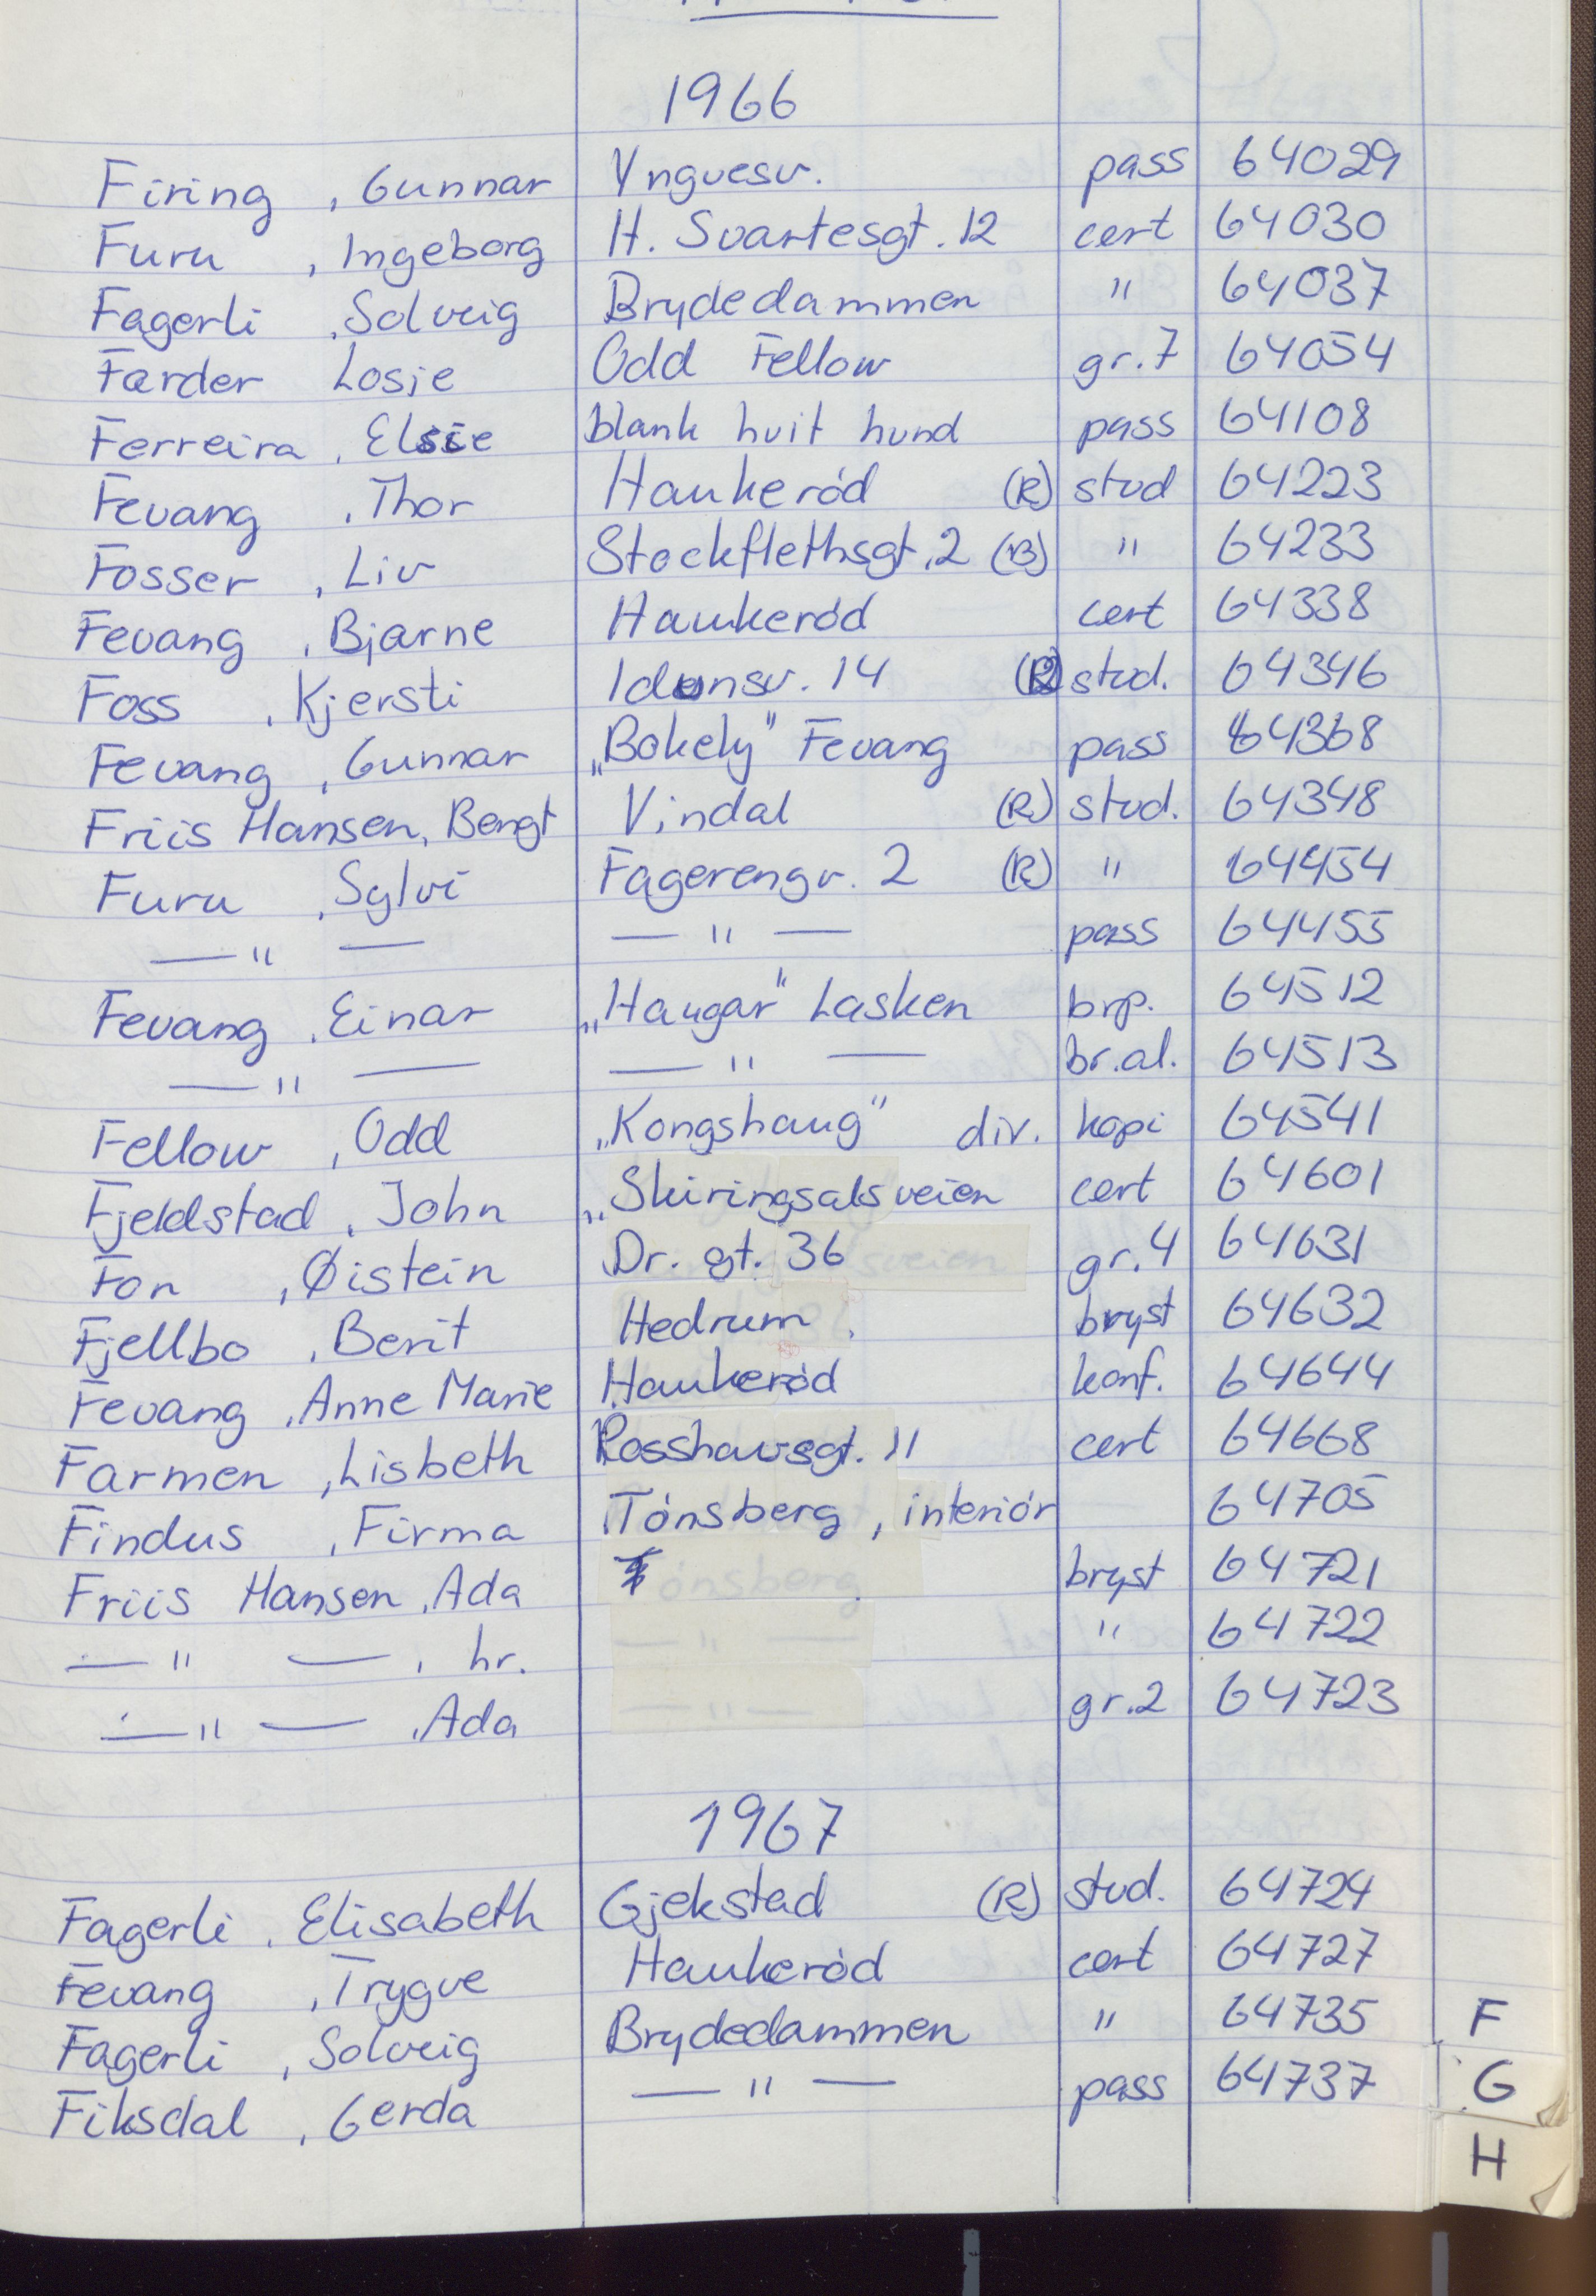 1966
Firing , Gunnar Yngvesv. pass 64029
Furu , Ingeborg H. Svartesgt. 12 cert 64030
Fagerli , Solveig Brydedammen " 64037
Færder Losje Odd Fellow gr. 7 64054
Ferreira , Elsie blank hvit hund pass 64108
Fevang , Thor Haukerød (R) stud 64223
Fosser , Liv Stockflethsgt. 2 (B) " 64233
Fevang , Bjarne Haukerød cert 64338
Foss , Kjersti Idunsv. 14 (R) stud. 64346
Fevang , Gunnar „Bokely" Fevang pass 64368
Friis Hansen, Bengt Vindal (R) stud. 64348
Furu , Sylvi Fagerengv. 2 (R) " 64454
— " — — " — pass 64455
Fevang , Einar „Haugar" Lasken brp. 64512
— " — — " — br.al. 64513
Fellow , Odd „Kongshaug" div. kopi 64541
Fjeldstad , John „Skiringsalsveien cert 64601
Fon , Øistein Dr. gt. 36 gr. 4 64631
Fjellbo , Berit Hedrum , bryst 64632
Fevang , Anne Marie Haukerød konf. 64644
Farmen , Lisbeth Rosshavsgt. 11 cert 64668
Findus , Firma Tønsberg , interiør 64705
Friis Hansen , Ada bryst 64721
— " — , hr. " 64722
— " — , Ada gr. 2 64723
1967
Fagerli , Elisabeth Gjekstad (R) stud. 64724
Fevang , Trygve Haukerød cert 64727
Fagerli , Solveig Brydedammen " 64735
Fiksdal , Gerda — " — pass 64737
F
G
H